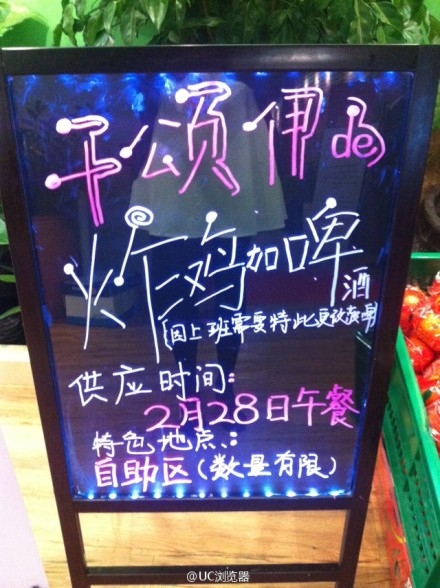 千颂伊de
炸鸡加啤酒
(因上班需要特此更改菜单)
供应时间:
2月28日午餐
特色地点:
自助区(数量有限)
@UC浏览器